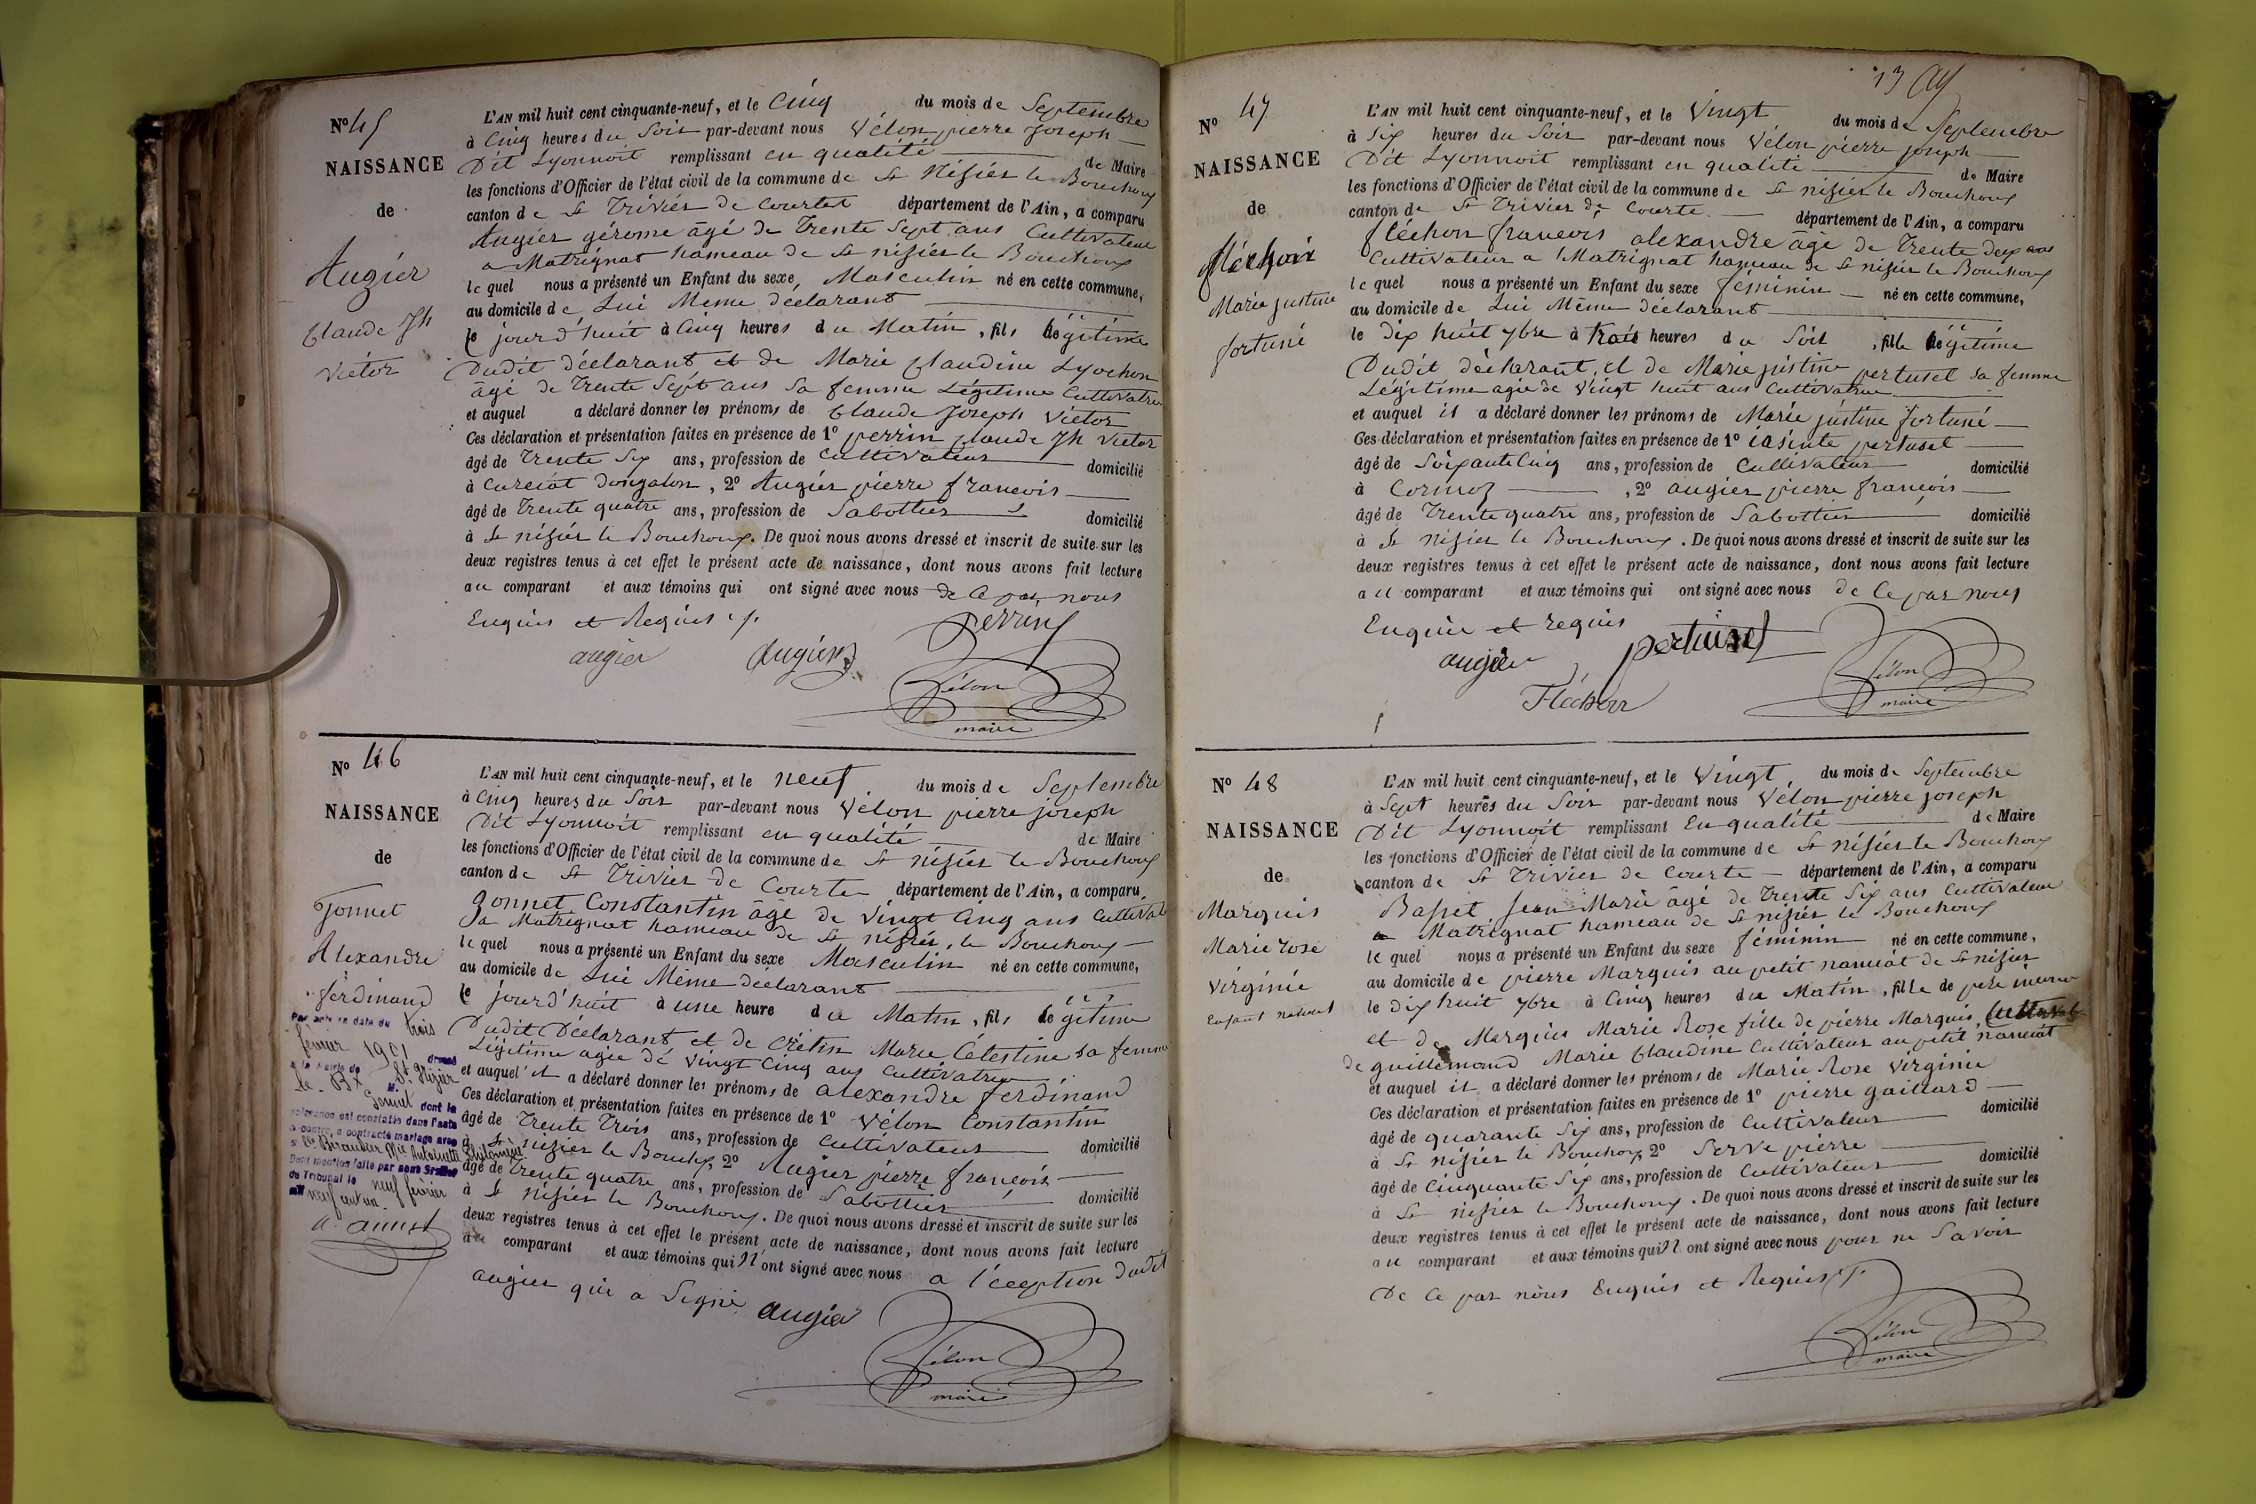 N° 45
NAISSANCE
de
Augier
Claude Jh
Victor
L'AN mil huit cent cinquante-neuf, et le Cinq du mois de Septembre
à Cinq heures du Soir par-devant nous Vélon pierre Joseph
Dit Lyonnoit remplissant en qualité de Maire
les fonctions d'Officier de l'état civil de la commune de St Nisier le Bouchoux
canton de St Trivier de Courtet département de l'Ain, a comparu
Augier gérome âgé de Trente Sept ans Cultivateur
a Matrignat hameau de St nisier le Bouchoux
lequel nous a présenté un Enfant du sexe Masculin né en cette commune,
au domicile de Lui Meme déclarant
le jourd'huit à Cinq heures du Matin, fils légitime
Dudit déclarant et de Marie Claudine Lyochon
âgé de Trente Sept ans Sa femme Légitime Cultivatrice
et auquel a déclaré donner les prénoms de Claude Joseph Victor
Ces déclaration et présentation faites en présence de 1° perrin Claude Jh Victor
âgé de Trente Six ans, profession de Cultivateur domicilié
à Curciat Dongalon, 2° Augier pierre francois
âgé de Trente quatre ans, profession de Sabottier domicilié
à St nisier le Bouchoux. De quoi nous avons dressé et inscrit de suite sur les
deux registres tenus à cet effet le présent acte de naissance, dont nous avons fait lecture
au comparant et aux témoins qui ont signé avec nous de Ce par nous
Enquis et Requis
perrin
augier Augier
Vélon
maire
N° 46
NAISSANCE
de
Gonnet
Alexandre
ferdinand
Par acte en date du trois
février 1901 dressé
à la Mairie de St Nizier
le Bx M. Gonnet dont la
naissance est constatée dans l'acte
ci-contre, a contracté mariage avec
Mlle Béraudier Mie Antoinette Philomène
Dont mention faite par nous Greffier
du Tribunal le neuf février
mil neuf cent un.
L'AN mil huit cent cinquante-neuf, et le neuf du mois de Septembre
à Cinq heures du Soir par-devant nous Vélon pierre joseph
Dit Lyonnoit remplissant en qualité de Maire
les fonctions d'Officier de l'état civil de la commune de St nisier le Bouchoux
canton de St Trivier de Courte département de l'Ain, a comparu
Gonnet Constantin âgé de Vingt Cinq ans Cultivat
a Matrignat hameau de St nisier le Bouchoux
lequel nous a présenté un Enfant du sexe Masculin né en cette commune,
au domicile de Lui Même déclarant
le jourd'huit à une heure du Matin, fils légitime
Dudit Déclarant et de Crétin Marie Célestine sa femme
Légitime agée de Vingt Cinq ans Cultivatrice
et auquel il a déclaré donner les prénoms de alexandre ferdinand
Ces déclaration et présentation faites en présence de 1° Vélon Constantin
âgé de Trente Trois ans, profession de Cultivateur domicilié
à St nizier le Bouchx, 2° Augier pierre francois
âgé de Trente quatre ans, profession de Sabottier domicilié
à St nisier le Bouchoux. De quoi nous avons dressé et inscrit de suite sur les
deux registres tenus à cet effet le présent acte de naissance, dont nous avons fait lecture
au comparant et aux témoins qui n'ont signé avec nous a l'éception dudit
augier qui a Signé augier
Vélon
maire
13
N° 47
NAISSANCE
de
fléchon
Marie justine
fortuné
L'AN mil huit cent cinquante-neuf, et le Vingt du mois de Septembre
à Six heures du Soir par-devant nous Vélon pierre joseph
Dit Lyonnoit remplissant en qualité de Maire
les fonctions d'Officier de l'état civil de la commune de St nisier le Bouchoux
canton de St Trivier de Courte département de l'Ain, a comparu
fléchon francois alexandre âgé de Trente deux ans
Cultivateur a Matrignat hameau de St nisier le Bouchoux
lequel nous a présenté un Enfant du sexe féminin né en cette commune,
au domicile de Lui Même déclarant
le Dix huit 7bre à trois heures du Soir, fille légitime
Dudit déclarant et de Marie justine pertuset sa femme
Légitime agée de Vingt huit ans Cultivatrice
et auquel il a déclaré donner les prénoms de Marie justine fortuné
Ces déclaration et présentation faites en présence de 1° iasinte pertuset
âgé de Soixante Cinq ans, profession de Cultivateur domicilié
à Cormoz, 2° augier pierre francois
âgé de Trente quatre ans, profession de Sabottier domicilié
à St nisier le Bouchoux. De quoi nous avons dressé et inscrit de suite sur les
deux registres tenus à cet effet le présent acte de naissance, dont nous avons fait lecture
au comparant et aux témoins qui ont signé avec nous de Ce par nous
Enquis et requis
augier pertuiset
Fléchon
Vélon
maire
N° 48
NAISSANCE
de
Marquis
Marie rose
Virginie
Enfant naturel
L'AN mil huit cent cinquante-neuf, et le Vingt du mois de Septembre
à Sept heures du Soir par-devant nous Vélon pierre joseph
Dit Lyonnoit remplissant En qualité de Maire
les fonctions d'Officier de l'état civil de la commune de St nisier le Bouchoux
canton de St Trivier de Courte département de l'Ain, a comparu
Basset Jean Marie âgé de Trente Six ans Cultivateur
a Matrignat hameau de St nisier le Bouchoux
lequel nous a présenté un Enfant du sexe féminin né en cette commune,
au domicile de pierre Marquis au petit nanciat de St nisier
le Dix huit 7bre à Cinq heures du Matin, fille de père inconnu
et de Marquis Marie Rose fille de pierre Marquis
de guillemond Marie Claudine Cultivateur au petit nanciat
et auquel il a déclaré donner les prénoms de Marie Rose Virginie
Ces déclaration et présentation faites en présence de 1° pierre gaillard
âgé de quarante Six ans, profession de Cultivateur domicilié
à St nisier le Bouchoux 2° Serve pierre
âgé de Cinquante Six ans, profession de Cultivateur domicilié
à St nisier le Bouchoux. De quoi nous avons dressé et inscrit de suite sur les
deux registres tenus à cet effet le présent acte de naissance, dont nous avons fait lecture
au comparant et aux témoins qui n'ont signé avec nous pour ne Savoir
De Ce par nous Enquis et Requis
Vélon
maire